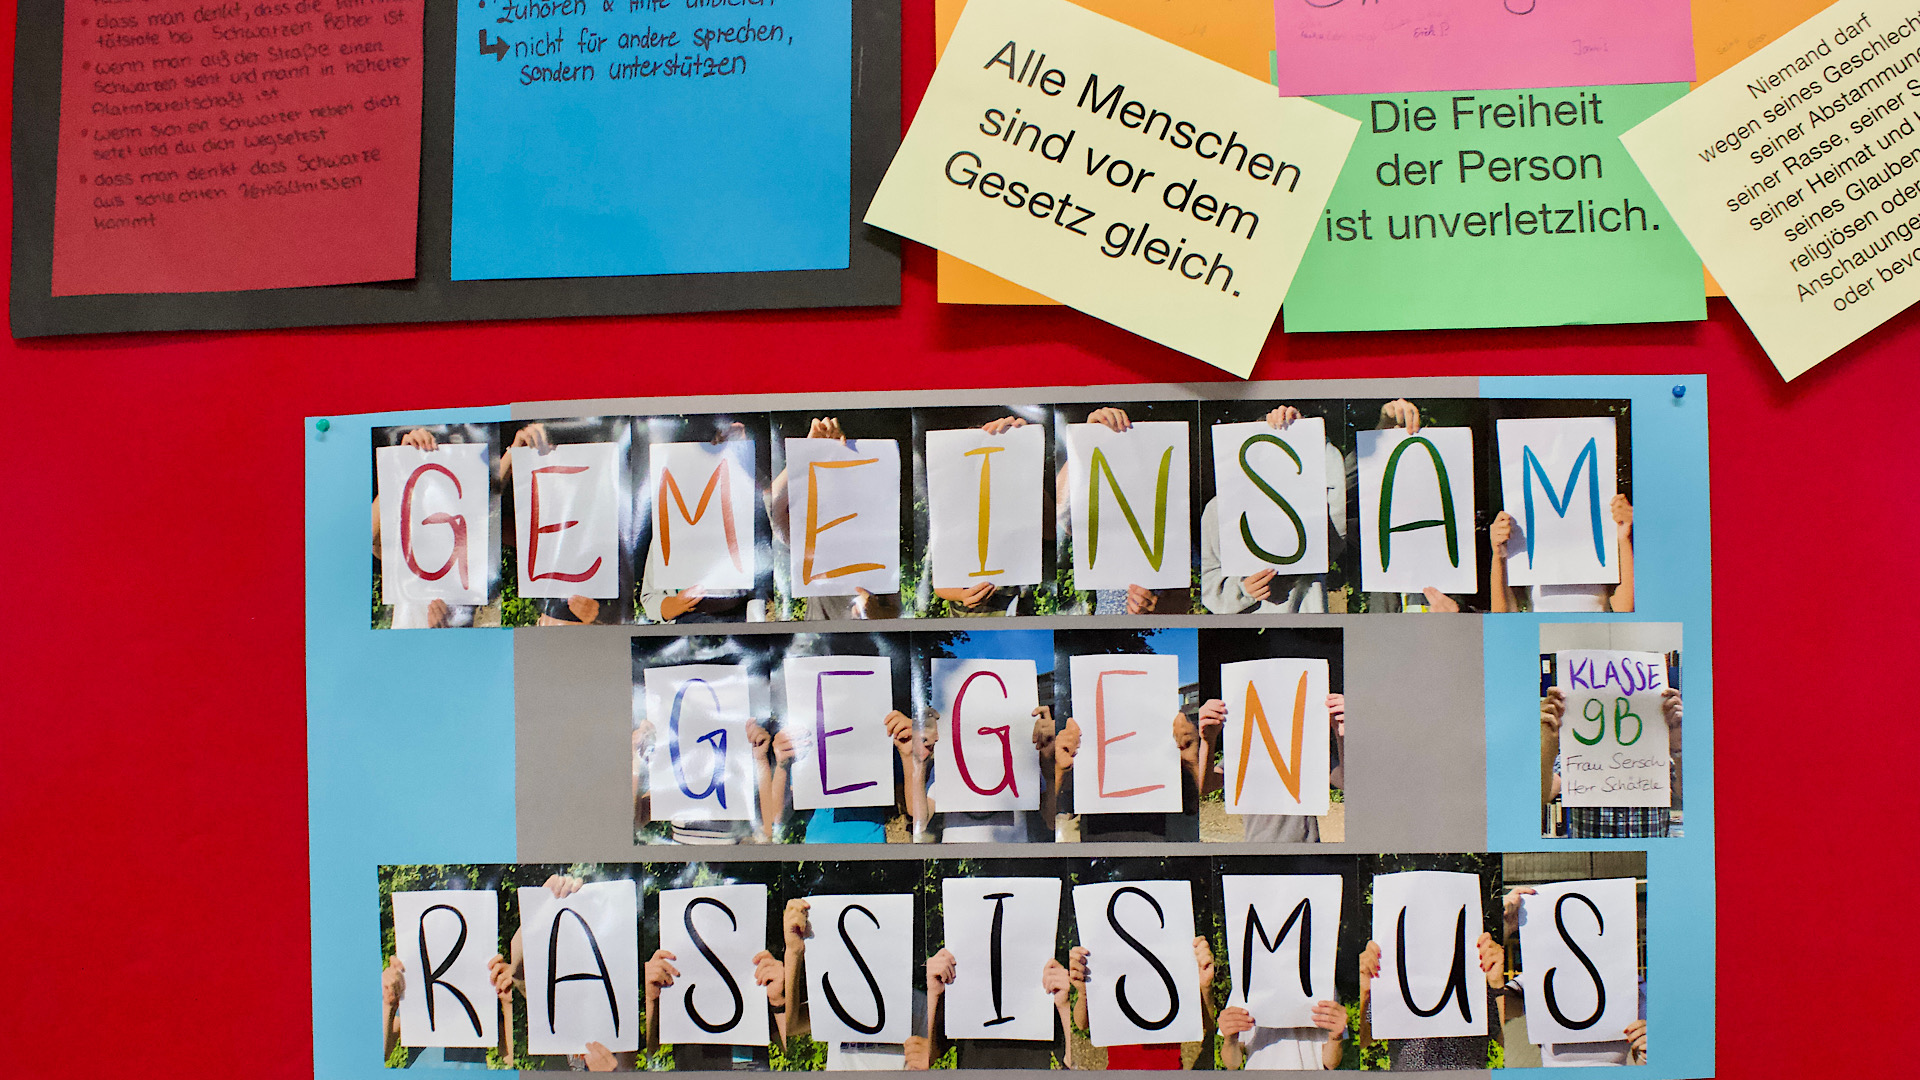 dass man denkt, dass die
tätsrate bei Schwarzen höher ist
wenn man auf der Straße einen
Schwarzen sieht und mann in höherer
Alarmbereitschaft ist
wenn sich ein Schwarzer neben dich
setzt und du dich wegsetzst
dass man denkt dass Schwarze
aus schlechten Verhältnissen
kommt
zuhören & Hilfe anbieten
nicht für andere sprechen,
sondern unterstützen
Alle Menschen
sind vor dem
Gesetz gleich.
Die Freiheit
der Person
ist unverletzlich.
Niemand darf
wegen seines Geschlecht
seiner Abstammung
seiner Rasse, seiner S
seiner Heimat und
seines Glauben
religiösen oder
Anschauunge
oder bevo
GEMEINSAM
GEGEN
KLASSE
9B
Frau Sersch
Herr Schätzle
RASSISMUS